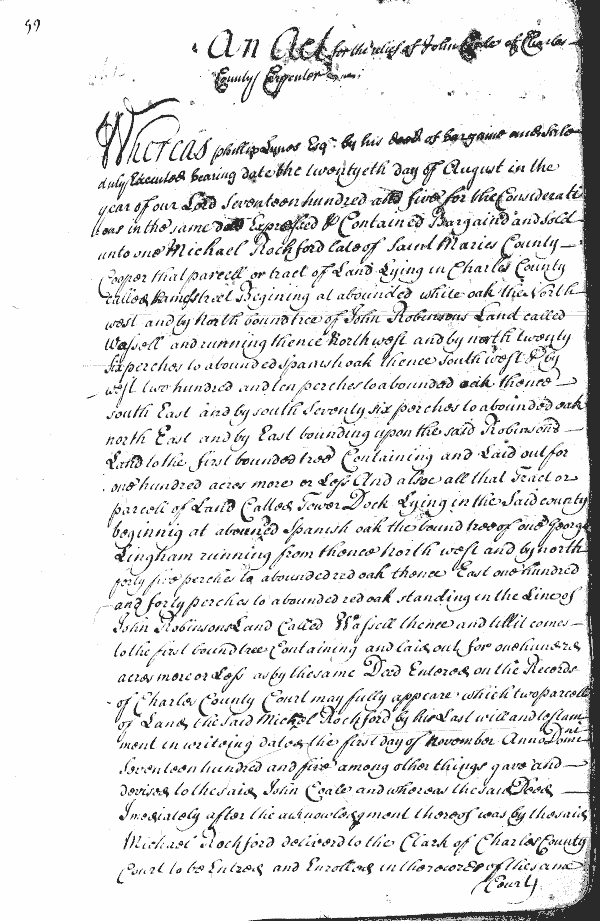 59
An Act for the relief of John Coale of Charles
County Carpenter
Whereas phillip Lynes Esqr. by his deed of bargaine and Sale
duly Executed bearing date the twentyeth day of August in the
year of our Lord Seventeen hundred and five for the Considerati
ons in the same deed Expressed & Contained Bargaind and Sold
unto one Michael Rochford late of Saint Maries County
Cooper that parcell or tract of Land Lying in Charles County
called Begining at a bounded white oak the North
west and by North bound tree of John Robinsons Land called
Wassell and running thence North west and by north twenty
six perches to a bounded Spanish oak thence South west & by
west two hundred and ten perches to a bounded oak thence
South East and by south Seventy six perches to a bounded oak
north East and by East bounding upon the said Robinsons
Land to the first bounded tree Containing and Laid out for
one hundred acres more or Less And alsoe all that Tract or
parcell of Land Called Tower Dock Lying in the Said county
beginnig at a bounded Spanish oak the bound tree of one George
Lingham running from thence North west and by north
forty five perches to a bounded red oak thence East one hundred
and forty perches to a bounded red oak standing in the Line of
John Robinsons Land Called Wassell thence and till it comes
to the first bound tree Containing and laid out for one hundred
acres more or Less as by the same Deed Entered on the Records
of Charles County Court may fully appeare which two parcells
of Land the said Michael Rochford by his Last will and testam
ment in writeing dated the first day of November Anno Domi
Seventeen hundred and five among other things gave and
devised to the said John Coale and whereas the said Deed
Imediately after the acknowledgment thereof was by the said
Michael Rochford deliverd to the Clark of Charles County
Court to be Entred and Enrolled in the records of the same
Court